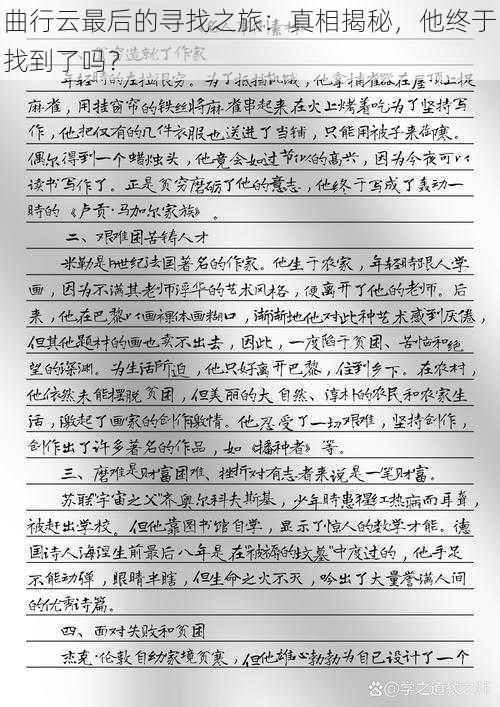 曲行云最后的寻找之旅：真相揭秘，他终于
找到了吗？
造就了作家
年轻時的左拉很穷。为了抵抗饥饿，他拿捕雀器在屋顶上捉
麻雀，用挂窗帘的铁丝将麻雀串起来在火上烤着吃为了坚持写
作，他把仅有的几件衣服也送进了当铺，只能用被子来御寒。
偶尔得到一个蜡烛头，他竟会如过节似的高兴，因为今夜可以
读书写作了。正是贫穷磨砺了他的意志，他终于写成了轰动一
時的《卢贡·马加尔家族》。
二、艰难困苦铸人才
米勒是19世纪法国著名的作家。他生于农家，年轻時跟人学
画，因为不满其老师浮华的艺术风格，便离开了他的老师。后
来，他在巴黎以画裸体画糊口，渐渐地他对此种艺术感到厌倦，
但其他题材的画也卖不出去，因此，一度陷于贫困、苦恼和绝
望的深渊。为生活所迫，他只好离开巴黎，住到乡下。在农村，
他依然未能摆脱贫困，但美丽的大自然、淳朴的农民和农家生
活，激起了画家的创作激情。他忍受了一切艰难，坚持创作，
创作出了许多著名的作品，如《播种者》等。
三、磨难是财富困难、挫折对有志者来说是一笔财富。
苏联"宇宙之父"齐奥尔科夫斯基，少年時患猩红热病而耳聋，
被赶出学校。但他靠图书馆自学，显示了惊人的数学才能。德
国诗人海涅生前最后八年是在"被褥的坟墓"中度过的，他手足
不能动弹，眼睛半瞎，但生命之火不灭，吟出了大量誉满人间
的优秀诗篇。
四、面对失败和贫困
杰克·伦敦自幼家境贫寒，但他雄心勃勃为自己设计了一个